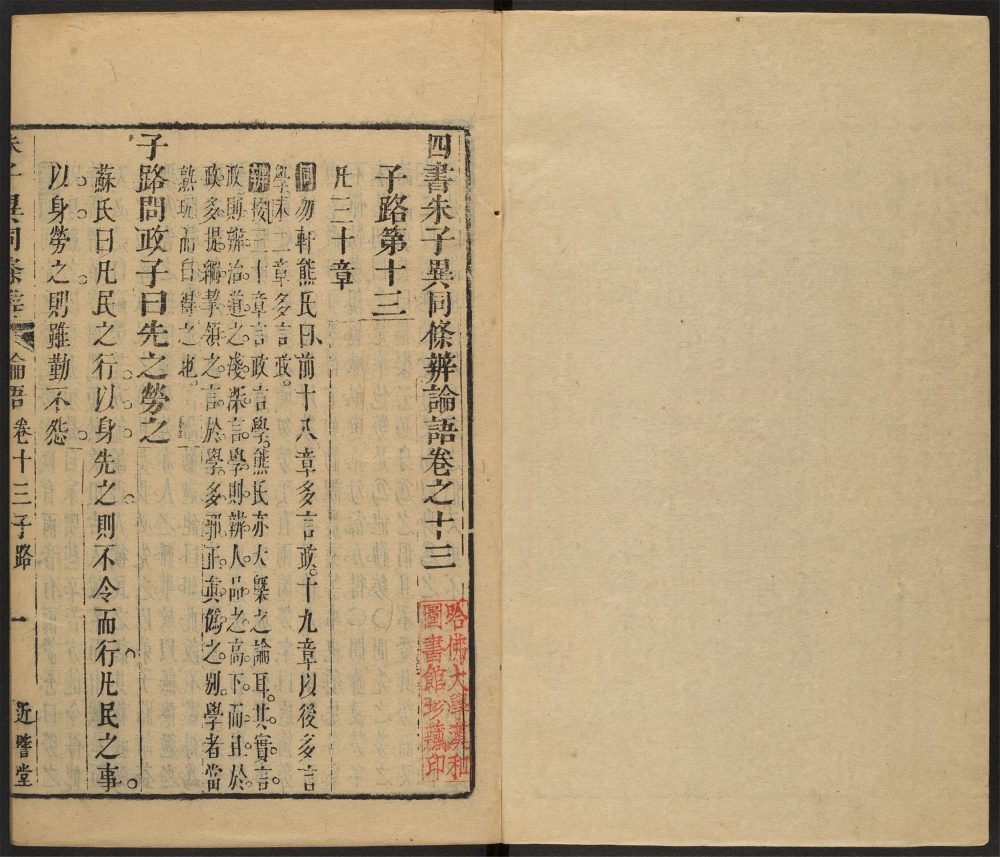 四書朱子異同條辨論語卷之十三
哈佛大學漢和
圖書館珍藏印
子路第十三
凡三十章
同勿軒熊氏曰前十八章多言政十九章以後多言
學末二章多言政
辨按三十章言政言學熊氏亦大槩之論耳其實言
政則辨治道之淺深言學則辨人品之高下而且於
政多提綱挈領之言於學多邪正眞僞之别學者當
熟玩而自得之也
子路問政子曰先之勞之
蘇氏曰凡民之行以身先之則不令而行凡民之事
以身勞之則雖勤不怨
朱子異同條辨 論語卷十三子路 一 近譬堂